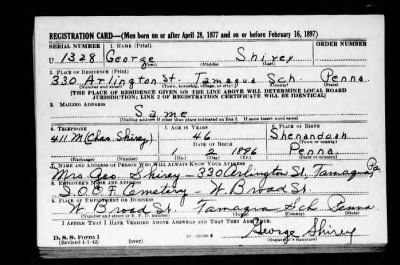 REGISTRATION CARD—(Men born on or after April 28, 1877 and on or before February 16, 1897)
SERIAL NUMBER 1. NAME (Print) ORDER NUMBER
U 1328 George Shirey
(First) (Middle) (Last)
2. PLACE OF RESIDENCE (Print)
330 Arlington St. Tamaqua Sch. Penna.
(Number and street) (Town, township, village, or city) (County) (State)
[THE PLACE OF RESIDENCE GIVEN ON THE LINE ABOVE WILL DETERMINE LOCAL BOARD
JURISDICTION; LINE 2 OF REGISTRATION CERTIFICATE WILL BE IDENTICAL]
3. MAILING ADDRESS
Same
(Mailing address if other than place indicated on line 2. If same insert word same)
4. TELEPHONE 5. AGE IN YEARS 6. PLACE OF BIRTH
411 M (Chas. Shirey) 46 Shenandoah
DATE OF BIRTH (Town or county)
1 2 1896 Penna.
(Exchange) (Number) (Mo.) (Day) (Yr.) (State or country)
7. NAME AND ADDRESS OF PERSON WHO WILL ALWAYS KNOW YOUR ADDRESS
Mrs. Geo. Shirey - 330 Arlington St, Tamaqua Pa.
8. EMPLOYER'S NAME AND ADDRESS
I.O.O.F. Cemetery - W. Broad St.
9. PLACE OF EMPLOYMENT OR BUSINESS
W. Broad St. Tamaqua Sch Penna
(Number and street or R. F. D. number) (Town) (County) (State)
I AFFIRM THAT I HAVE VERIFIED ABOVE ANSWERS AND THAT THEY ARE TRUE.
George Shirey
D. S. S. Form 1
(Revised 4-1-42) (over) (Registrant's signature)